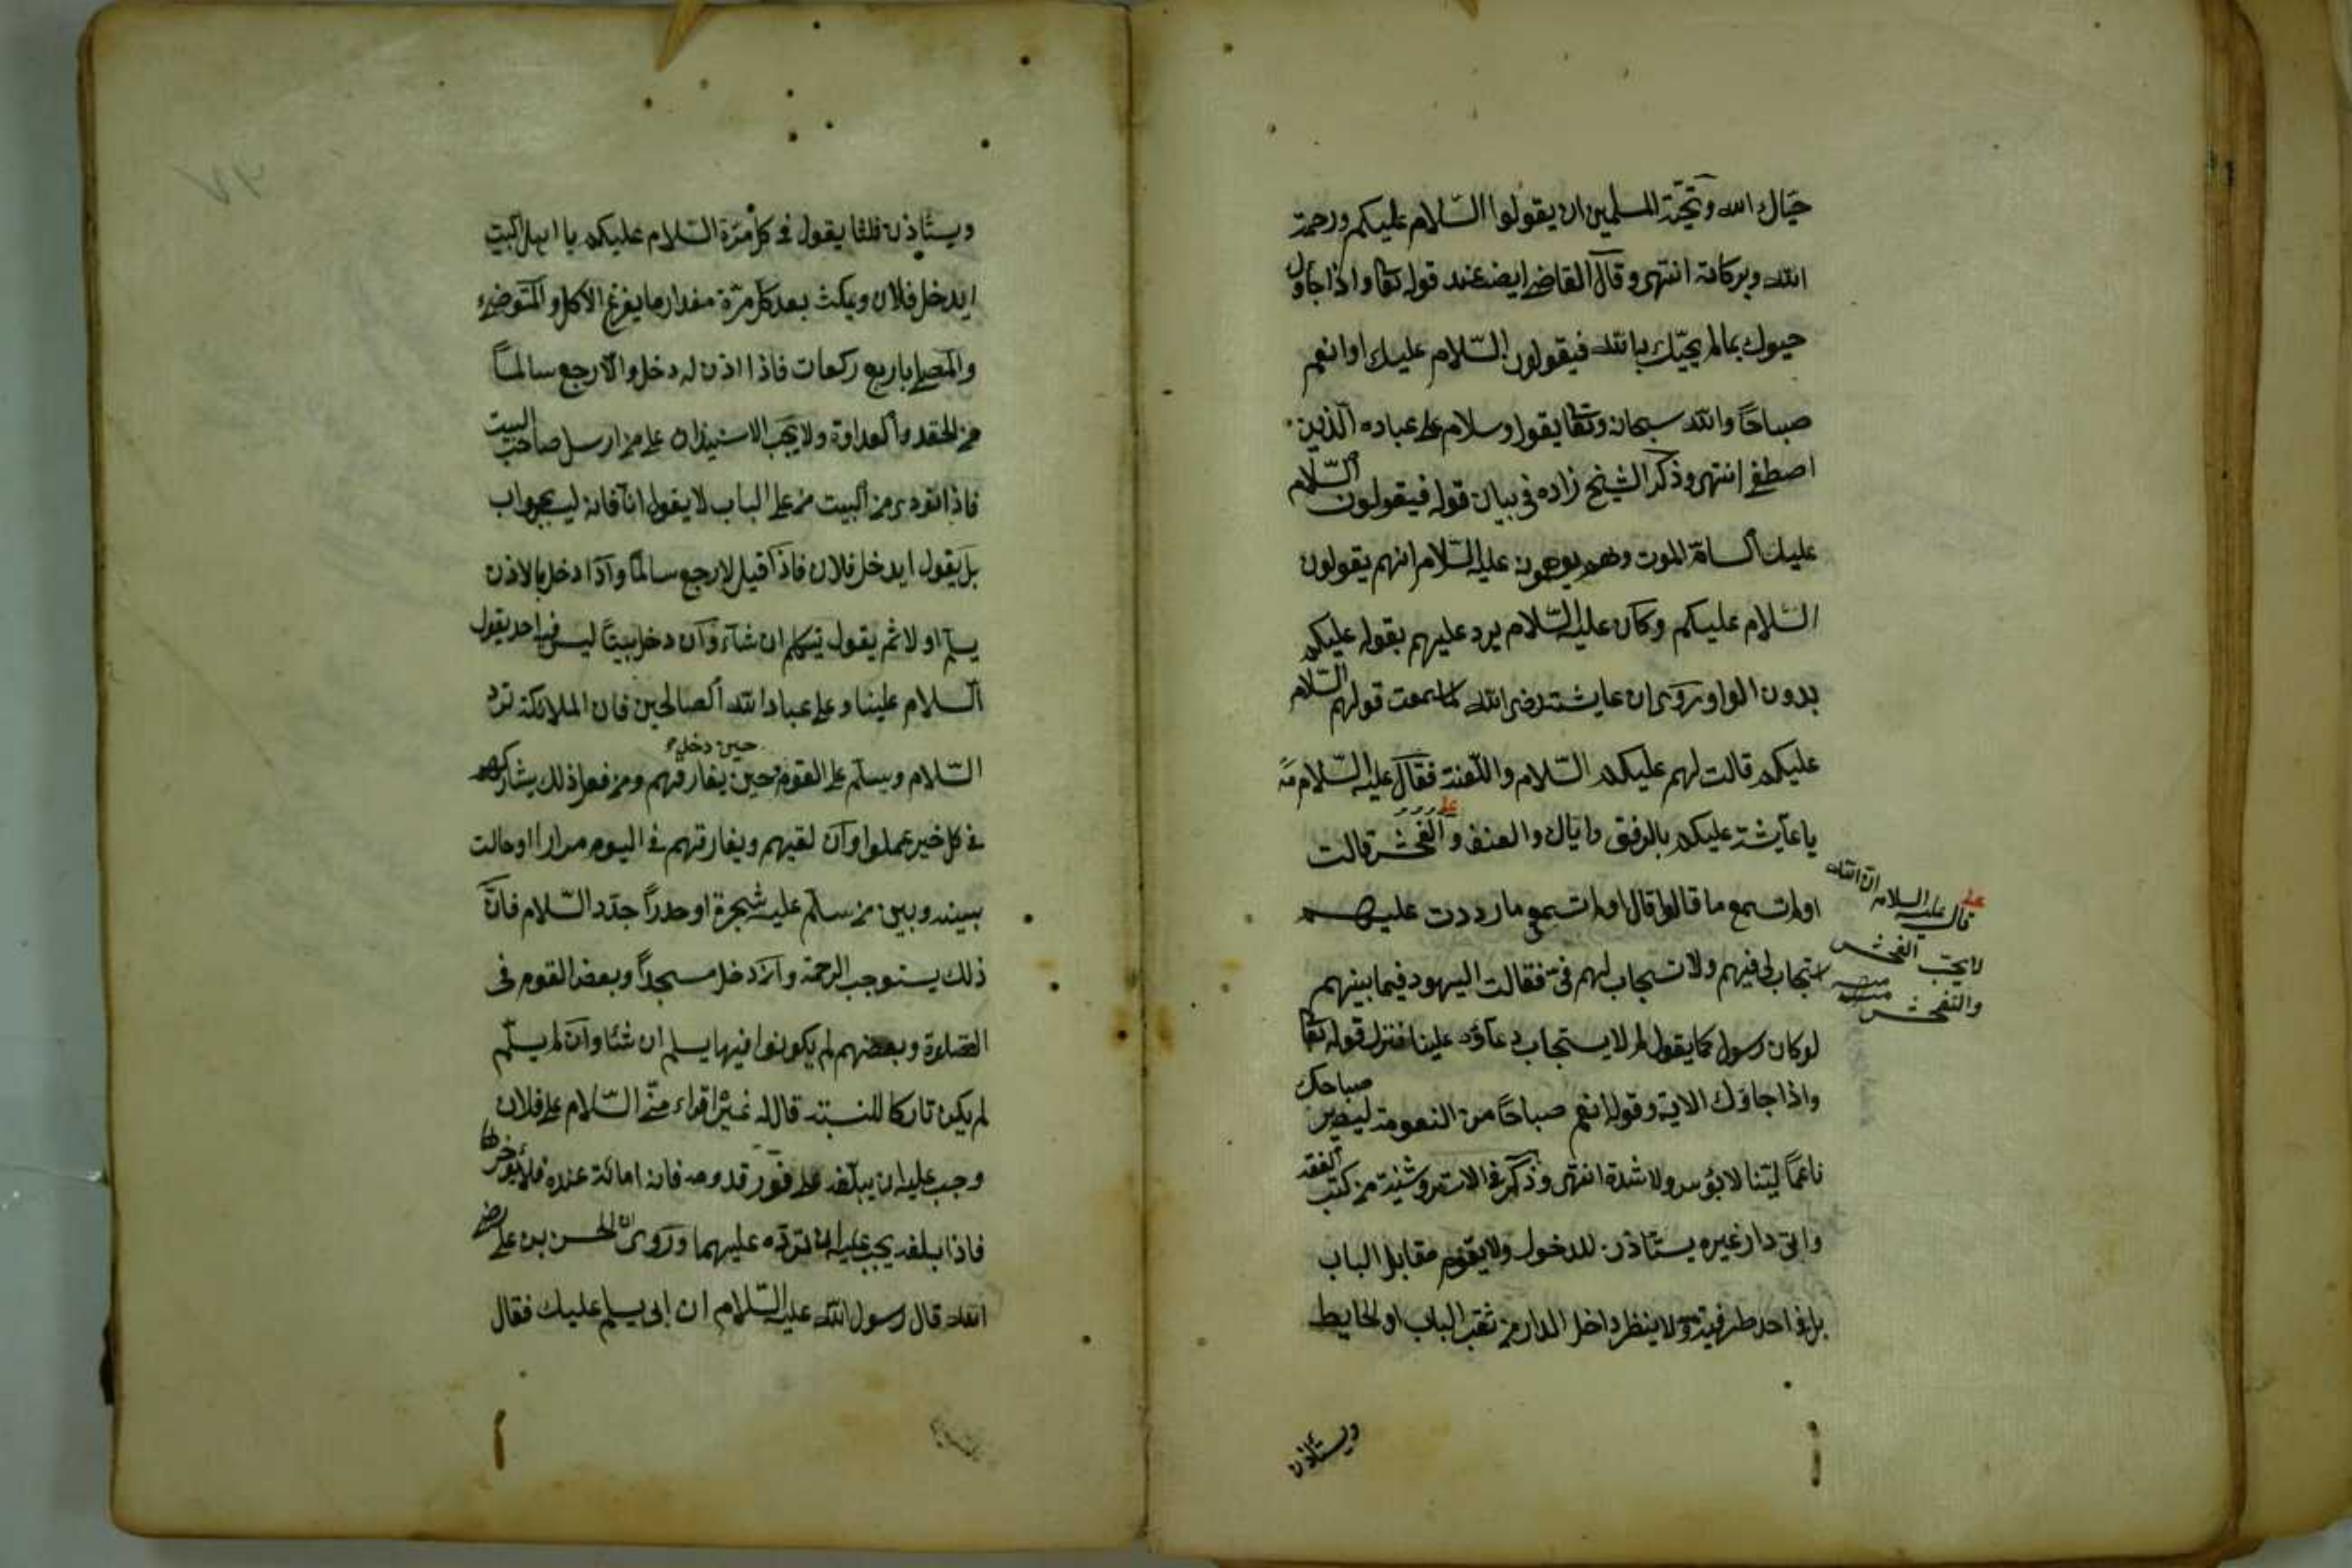 حيّاك الله وتحيّة المسلمين ان يقولوا السّلام عليكم ورحمة
الله وبركاته انتهى وقال القاضى ايضا عند قوله تعا واذا جاؤك
حيوك بما لم يحيّك به الله فيقولون السّلام عليك او انعم
صباحًا والله سبحانه وتعا يقول وسلام على عباده الذين
اصطفى انتهى وذكر الشيخ زاده فى بيان قوله فيقولون السّلام
عليك السامة الموت وهم يوهمون عليه السّلام انهم يقولون
السّلام عليكم وكان عليه السّلام يرد عليهم بقوله عليكم
بدون الواو وروى ان عايشة رضى الله لما سمعت قولهم السّلام
عليكم قالت لهم عليكم السّلام واللّعنة فقال عليه السّلام مه
يا عايشة عليكم بالرفق واياك والعنف والفحش قالت
اولم تسمع ما قالوا قال اولم تسمعى ما رددت عليهم
يستجاب لى فيهم ولا تستجاب لهم فىّ فقالت اليهود فيما بينهم
لو كان رسول كما يقول لم لا يستجاب دعاؤه علينا فنزل قوله تعا
واذا جاؤك الاية وقوله انعم صباحًا من النعومة ليصير صباحك
ناعمًا ليّنا لا بؤس ولا شدة انتهى وذكر فى الاستروشنية من كتب الفقه
واتى دار غيره يستأذن للدخول ولا يقوم مقابل الباب
بل فى احد طرفيه ولا ينظر داخل الدار من ثقب الباب او الحايط
قال عليه السلام ان الله
لا يحب الفحش
والتفحش
ويستأذن
ويستأذن ثلثا يقول فى كل مرّة السّلام عليكم يا اهل البيت
ايدخل فلان ويمكث بعد كل مرّة مقدار ما يفرغ الاكل والمتوضى
والمصلى باربع ركعات فاذا اذن له دخل والّا رجع سالمًا
من الحقد والعداوة ولا يجب الاستيذان على من ارسل صاحب البيت
فاذا نودى من البيت من على الباب لا يقول انا فانه ليس بجواب
بل يقول ايدخل فلان فاذا قيل لا رجع سالمًا واذا دخل بالاذن
يسلم اولا ثم يقول يتكلم ان شاء وان دخل بيتًا ليس فيه احد يقول
السلام علينا وعلى عباد الله الصالحين فان الملائكة ترد
السّلام ويسلّم على القوم حين دخل وحين يفارقهم ومن فعل ذلك يشاركهم
فى كل خير عملوا وان لقيهم ويفارقهم فى اليوم مرارا او حالت
بينه وبين من سلّم عليه شجرة او جدرًا جدّد السّلام فان
ذلك يستوجب الرحمة وان دخل مسجدًا وبعض القوم فى
الصّلوة وبعضهم لم يكونوا فيها يسلم ان شئا وان لم يسلّم
لم يكن تاركا للسنة قال له غيره اقراء منّى السّلام على فلان
وجب عليه ان يبلّغه على فور قدومه فانه امانة عنده فلا يؤخرها
فاذا بلغه يجب عليه ان تردّه عليهما وروى ان الحسن بن على رضى
الله قال رسول الله عليه السّلام ان ابى يسلم عليك فقال